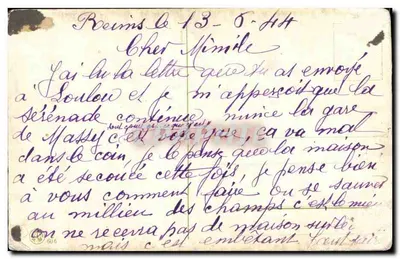 Reims le 13-6-44
Cher Mimile
J'ai lu la lettre que tu as envoyé
à Loulou et je m'apperçoit que la
sérénade continue, mince la gare
de Massy c'est que, ça va mal
dans le coin, je pense que la maison
a été secouée cette fois, je pense bien
à vous comment faire ou se sauver
au millieu des champs c'est le mieux
on ne recevra pas de maison sur le
mais c'est embêtant tout